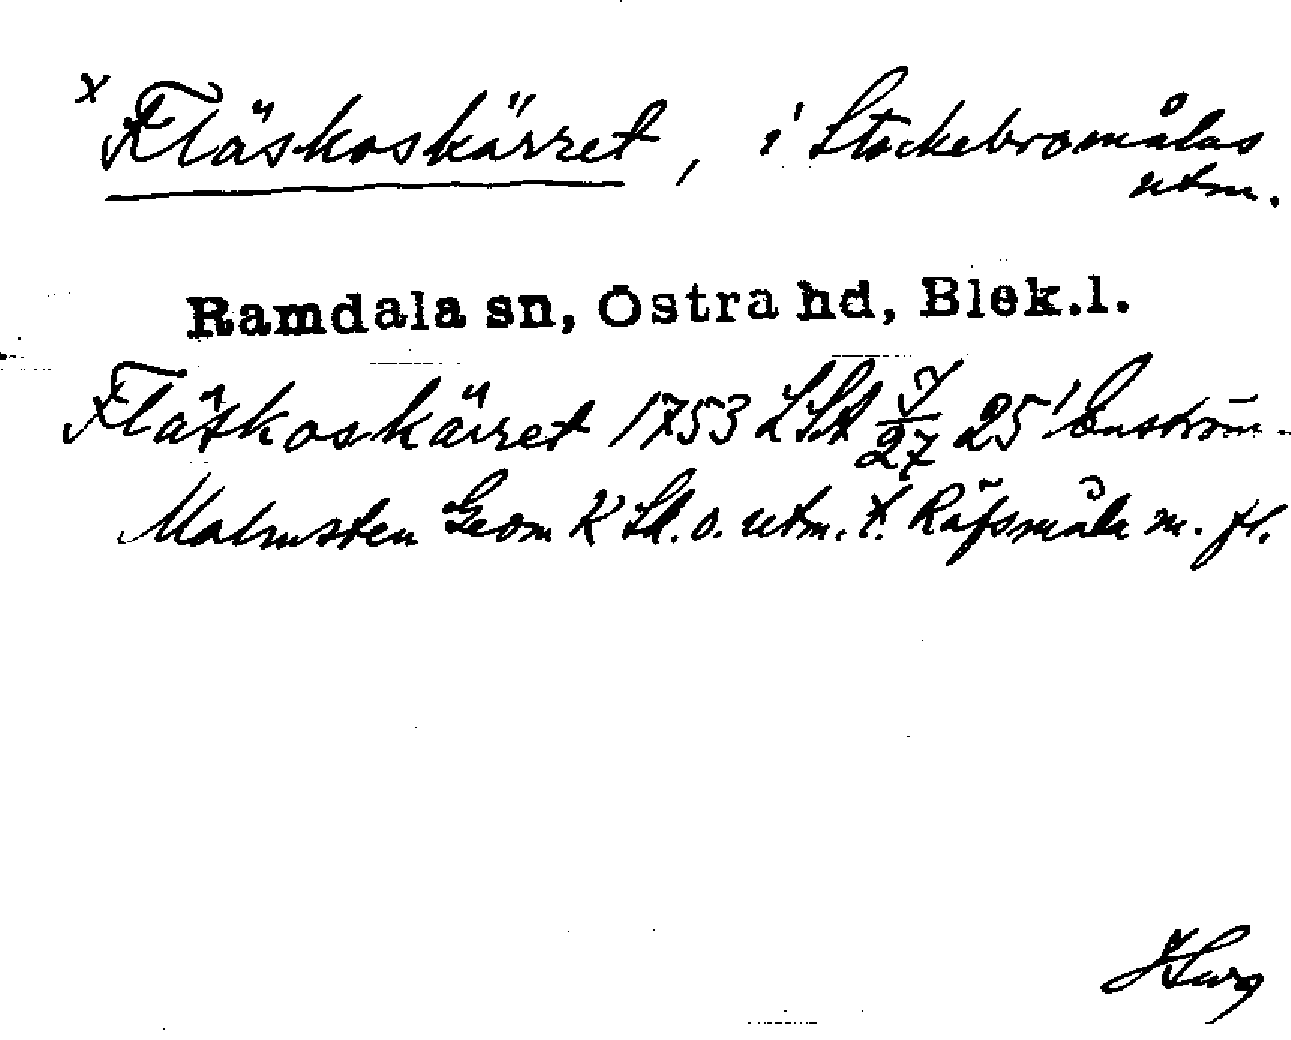 x Fläskoskärret, i Stockebromålas
utm.
Ramdala sn, Östra hd, Blek.l.
Fläskoskärret 1753 LSA 25 Enström-
Malmsten Geom K Sd. o. utm. t. Räfsmåla m. fl.